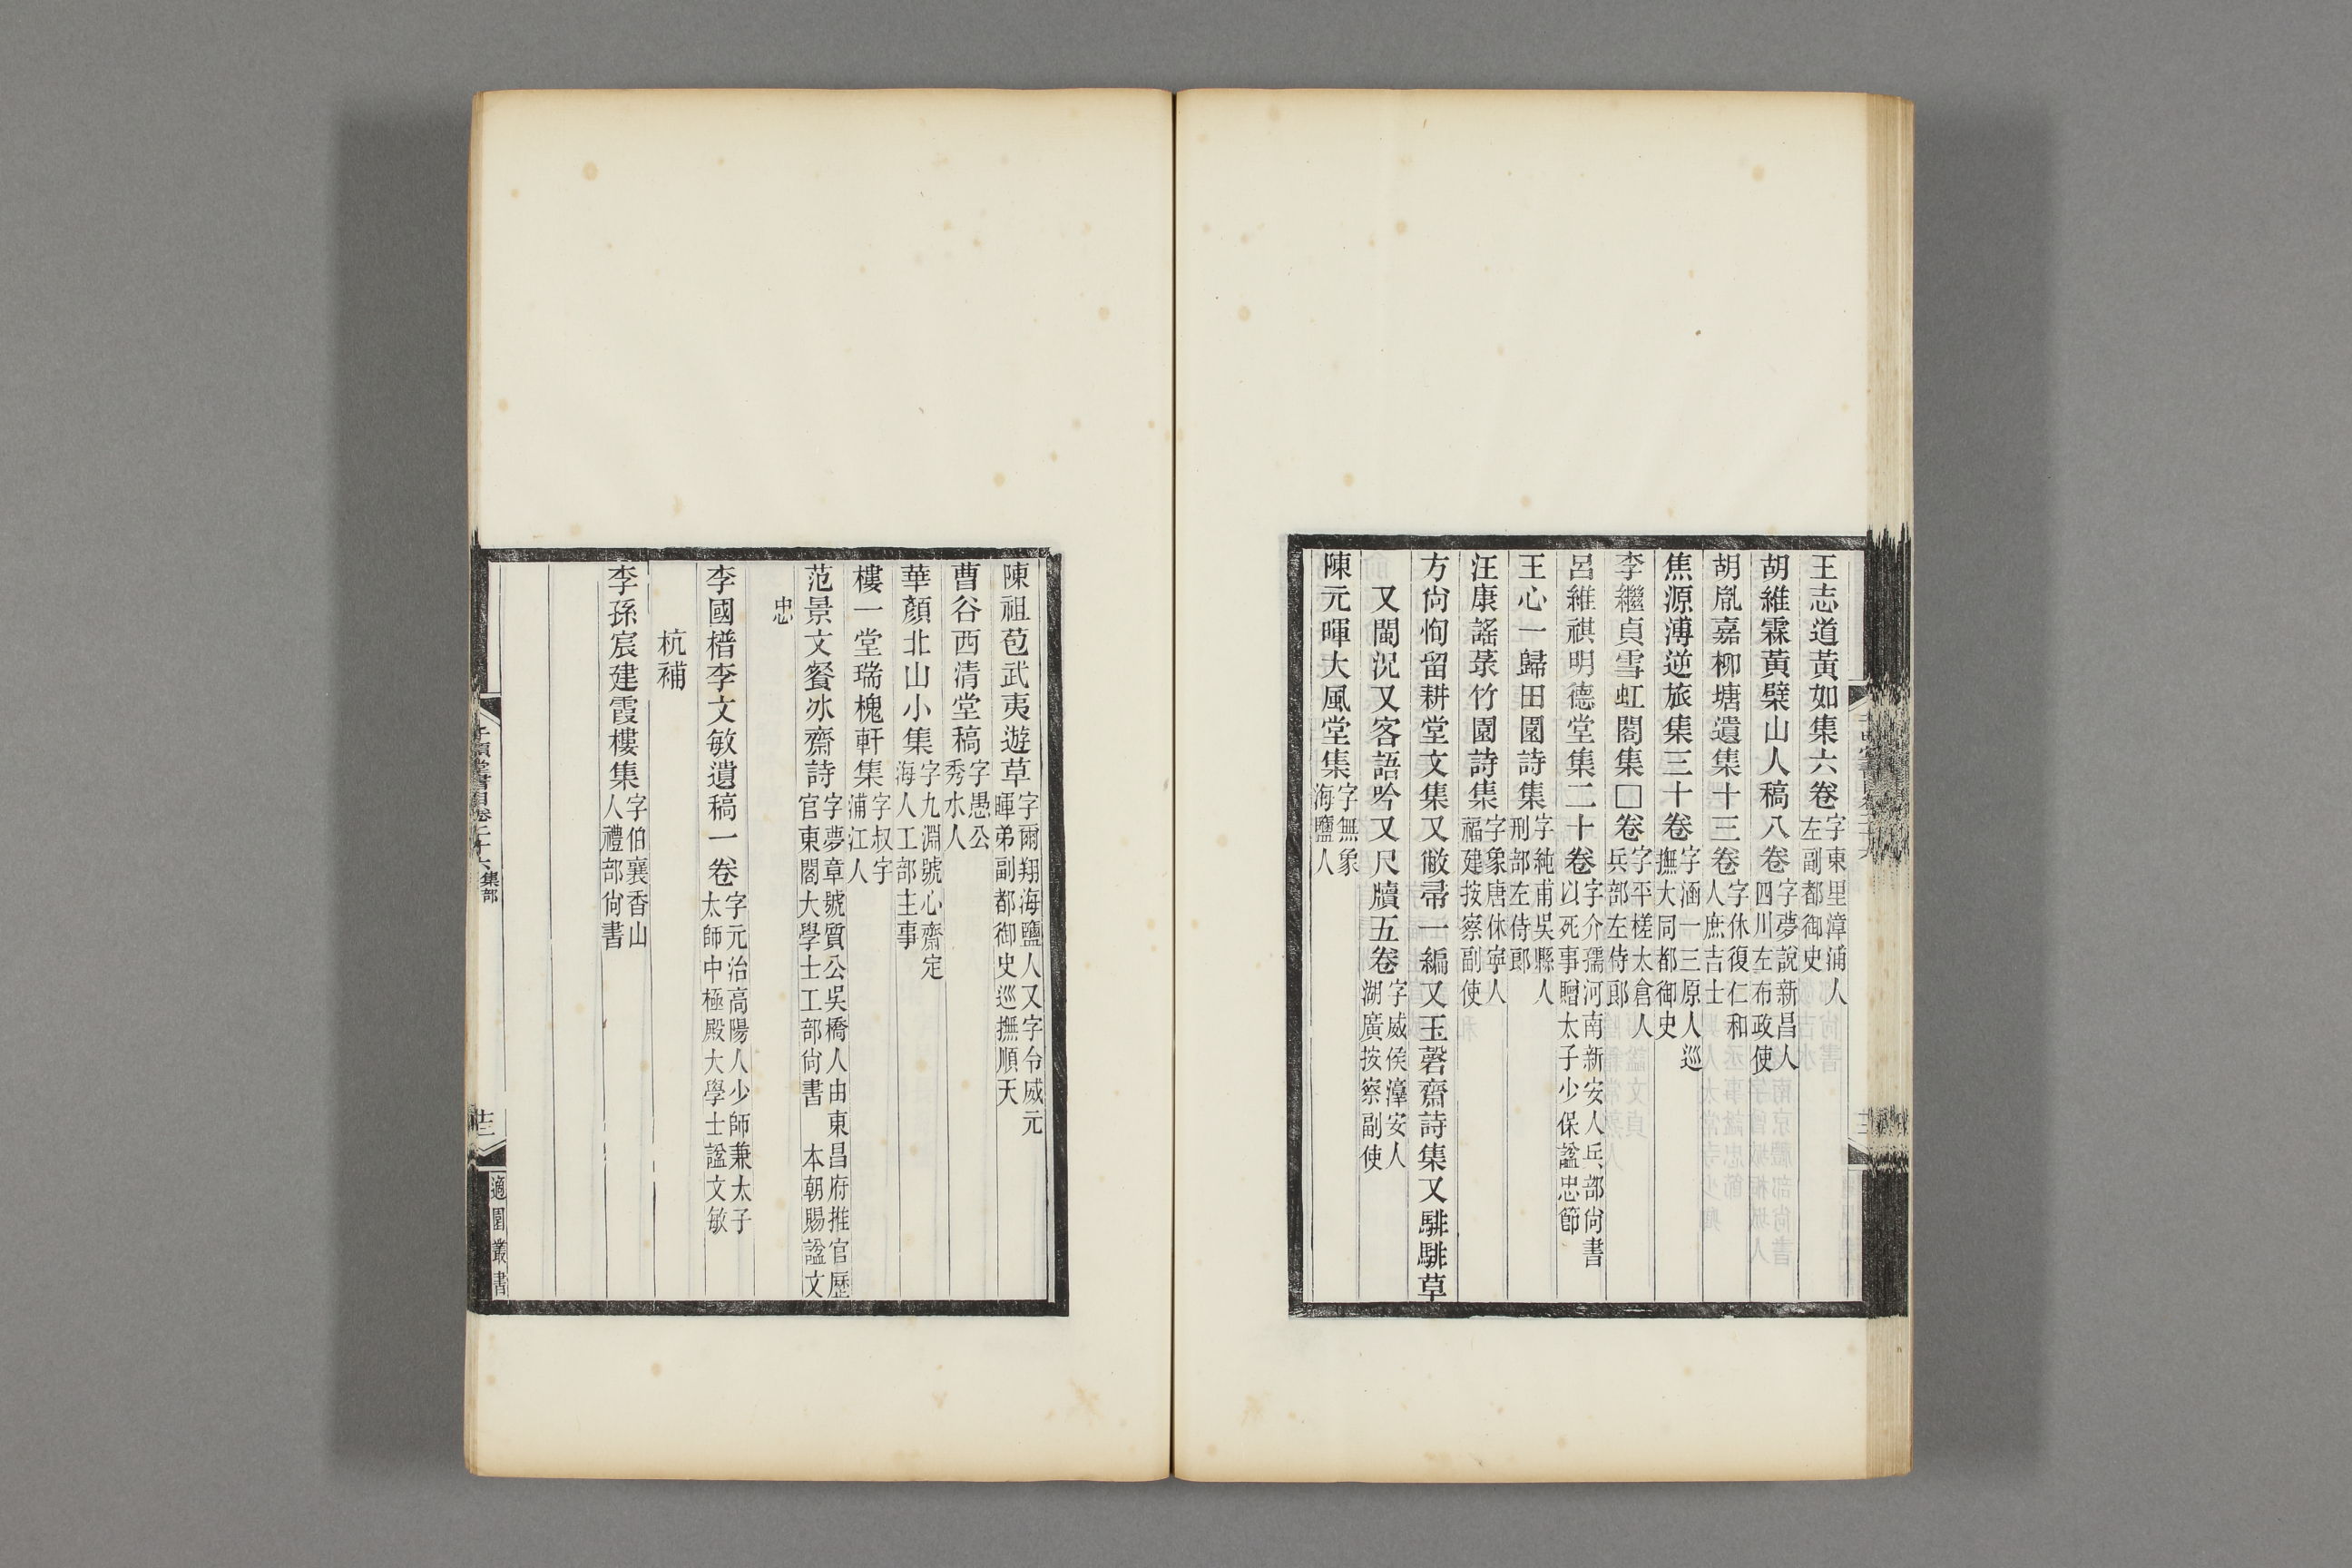 王志道黃如集六卷字東里漳浦人左副都御史
胡維霖黃檗山人稿八卷字夢說新昌人四川左布政使
胡胤嘉柳塘遺集十三卷字休復仁和人庶吉士
焦源溥逆旅集三十卷字涵一三原人巡撫大同都御史
李繼貞雪虹閣集□卷字平槎太倉人兵部左侍郎
呂維祺明德堂集二十卷字介孺河南新安人兵部尚書以死事贈太子少保諡忠節
王心一歸田園詩集字純甫吳縣人刑部左侍郎
汪康謠菉竹園詩集字象唐休寧人福建按察副使
方尚恂留耕堂文集又敝帚一編又玉磬齋詩集又騑騑草
又閩況又客語吟又尺牘五卷字威侯漳安人湖廣按察副使
陳元暉大風堂集字無象海鹽人
陳祖苞武夷遊草字爾翔海鹽人又字令威元暉弟副都御史巡撫順天
曹谷西清堂稿字愚公秀水人
華顏北山小集字九淵號心齋定海人工部主事
樓一堂瑞槐軒集字叔宇浦江人
范景文餐冰齋詩字夢章號質公吳橋人由東昌府推官歷官東閣大學士工部尚書 本朝賜諡文
忠
李國𣚴李文敏遺稿一卷字元治高陽人少師兼太子太師中極殿大學士諡文敏
杭補
李孫宸建霞樓集字伯襄香山人禮部尚書
千頃堂書目卷二十六集部
十三
適園叢書